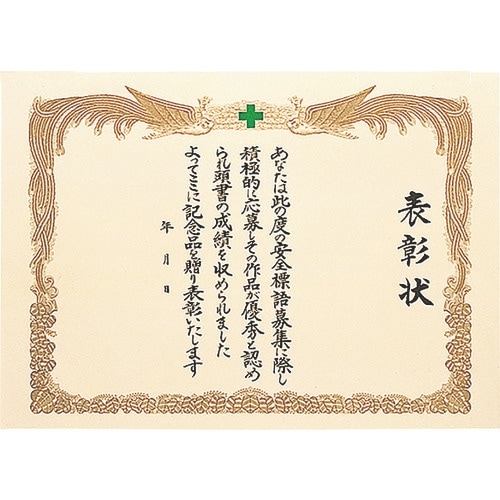 表彰状
あなたは此の度の安全標語募集に際し
積極的に応募しその作品が優秀と認め
られ頭書の成績を収められました
よってここに記念品を贈り表彰いたします
年　月　日